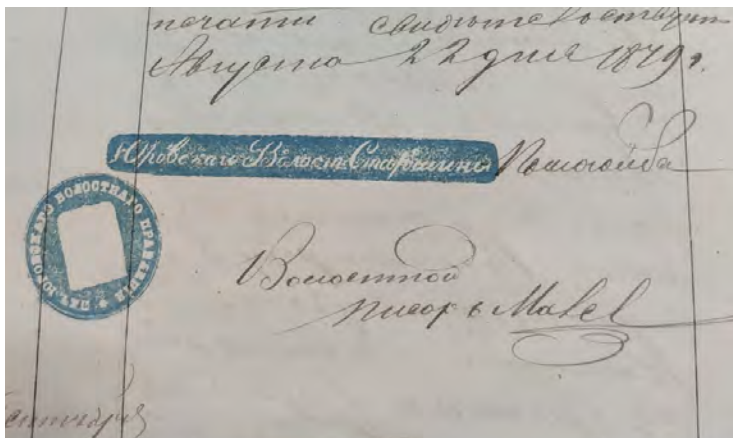 печати свидѣтельствуетъ
Августа 22 дня 1879 г.
Юровскаго Волост. Старшина
ПЕЧ. ЮРОВСКАГО ВОЛОСТНАГО ПРАВЛЕНІЯ
Волостной
писарь